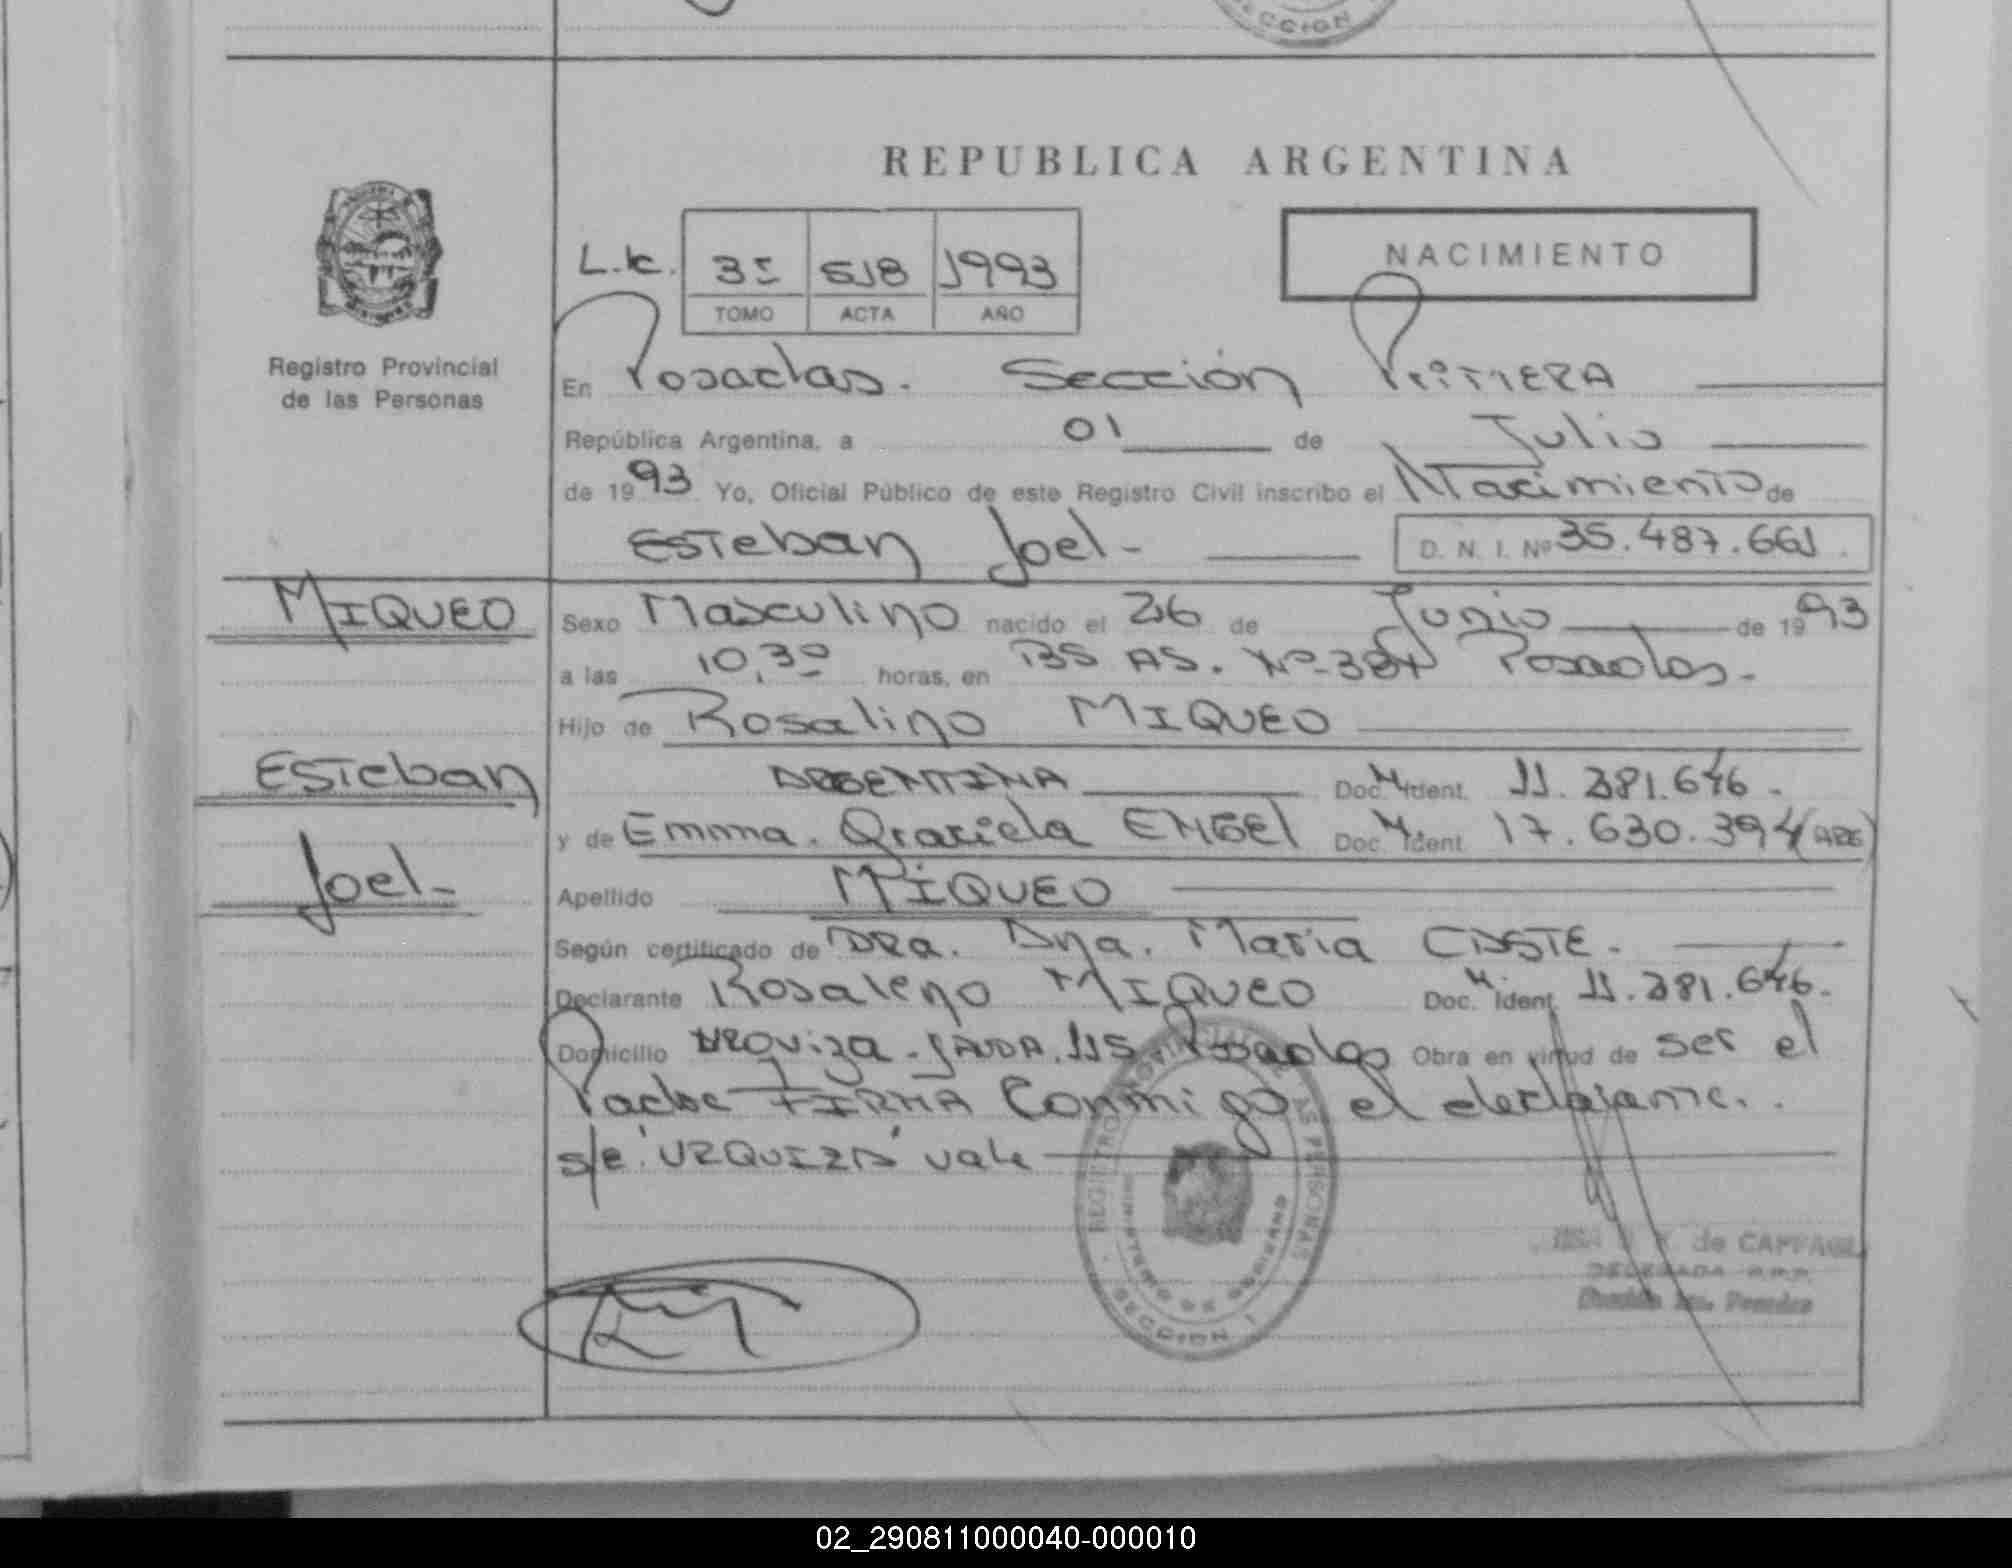 REPUBLICA ARGENTINA
NACIMIENTO
L.k. 3º 518 1993
TOMO ACTA AÑO
Registro Provincial
de las Personas
En Posadas. Sección Primera
República Argentina, a 01 de Julio
de 1993 Yo, Oficial Público de este Registro Civil inscribo el Nacimiento de
Esteban Joel - D. N. I. Nº 35.487.661
MIQUEO
Sexo Masculino nacido el 26 de Junio de 1993
a las 10,30 horas, en BS AS. Nº 384 Posadas.-
Hijo de Rosalino MIQUEO
Esteban
ARGENTINA Doc. M Ident. 11.381.646.-
y de Emma. Graciela ENGEL Doc. M Ident. 17.630.394 (ARG)
Joel-
Apellido MIQUEO
Según certificado de DRA. Dña. Maria
Declarante Rosaleno MIQUEO Doc. M. Ident. 11.381.646.
Domicilio URQuiza 115 Posadas Obra en virtud de ser el
Padre FIRMA Conmigo el declarante..
s/e 'URQUIZA' vale
REGISTRO PROVINCIAL DE LAS PERSONAS
MINISTERIO DE GOBIERNO
SECCION I
de
DELEGADA
SECCION
02_290811000040-000010